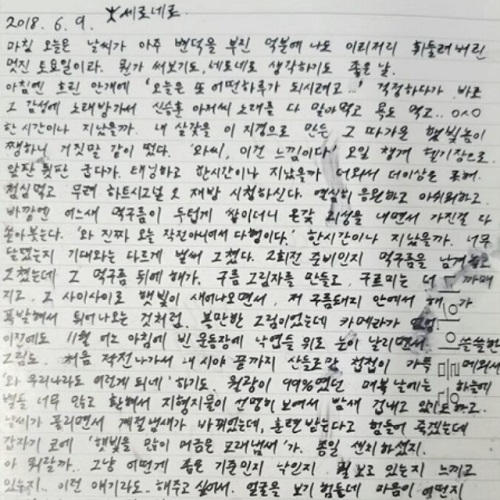 2018. 6. 9. *세로네로
마침 오늘은 날씨가 아주 변덕을 부린 덕분에 나도 이리저리 휘둘려버린
멋진 토요일이라. 뭔가 써보기도, 세로네로 생각하기도 좋은 날.
아침엔 흐린 안개에 '오늘은 또 어떤하루가 되시려고...' 걱정하다가 바로
그 감성에 노래방가서 신승훈 아저씨 노래를 다 말아먹고 욕도 먹고.. 0ㅅ0
한 시간이나 지났을까. 내 살갗을 이 지경으로 만든 그 따가운 햇빛놈이
쨍하니 거짓말 같이 떴다. '와씨, 이건 느낌이다' 오일 챙겨 헬기장으로
앞판 뒷판 굽다가. 태닝하고 한시간이나 지났을까 더와서 더이상은 못해.
점심먹고 무려 하트시그널 오 재방 시청하신다. 열심히 응원하고 아쉬워하고.
바깥엔 어느새 먹구름이 두텁게 쌓이더니 온갖 괴성을 내면서 가진걸 다
쏟아붓는다. '와 진짜 오늘 작전아니어서 다행이다.' 한시간이나 지났을까. 너무
단편인지 기대와는 다르게 벌써 그쳤다. 2회전 준비인지 먹구름을 남겨놓고
그쳤는데 그 먹구름 뒤에 해가. 구름 그림자를 만들고, 구르미는 더 까매
지고, 그 사이사이로 햇빛이 새어나오면서, 저 구름돼지 안에서 해가
폭발해서 튀어나오는 것처럼. 볼만한 그림이었는데 카메라가
이전에도 11월 어느 아침에 빈 운동장에 낙엽들 위로 눈이 날리면서 쓸쓸한
그림도. 처음 작전나가서 내 시야 끝까지 산들로만 첩첩이 가득 메워져
'와 우리나라도 이런게 되네' 하기도. 월광이 99%였던 매복 날에는 하늘에
별들 너무 많고 환해서 지형지물이 선명히 보여서 밤새 겁내고 있기도하고.
날씨가 풀리면서 계절냄새가 바뀌었는데, 훈련받는다고 힘들어 죽겠는데
갑자기 코에 '햇빛을 많이 머금은 모래냄새'가. 종일 센치하셨지.
아 뭐랄까. 그냥 어떻게 좋은 기준인지 난인지. 뭘 보고 있는지 느끼고
있는지.. 이런 얘기라도.. 해주고 싶어서. 얼굴을 보기 힘든데 마음이 어떤지